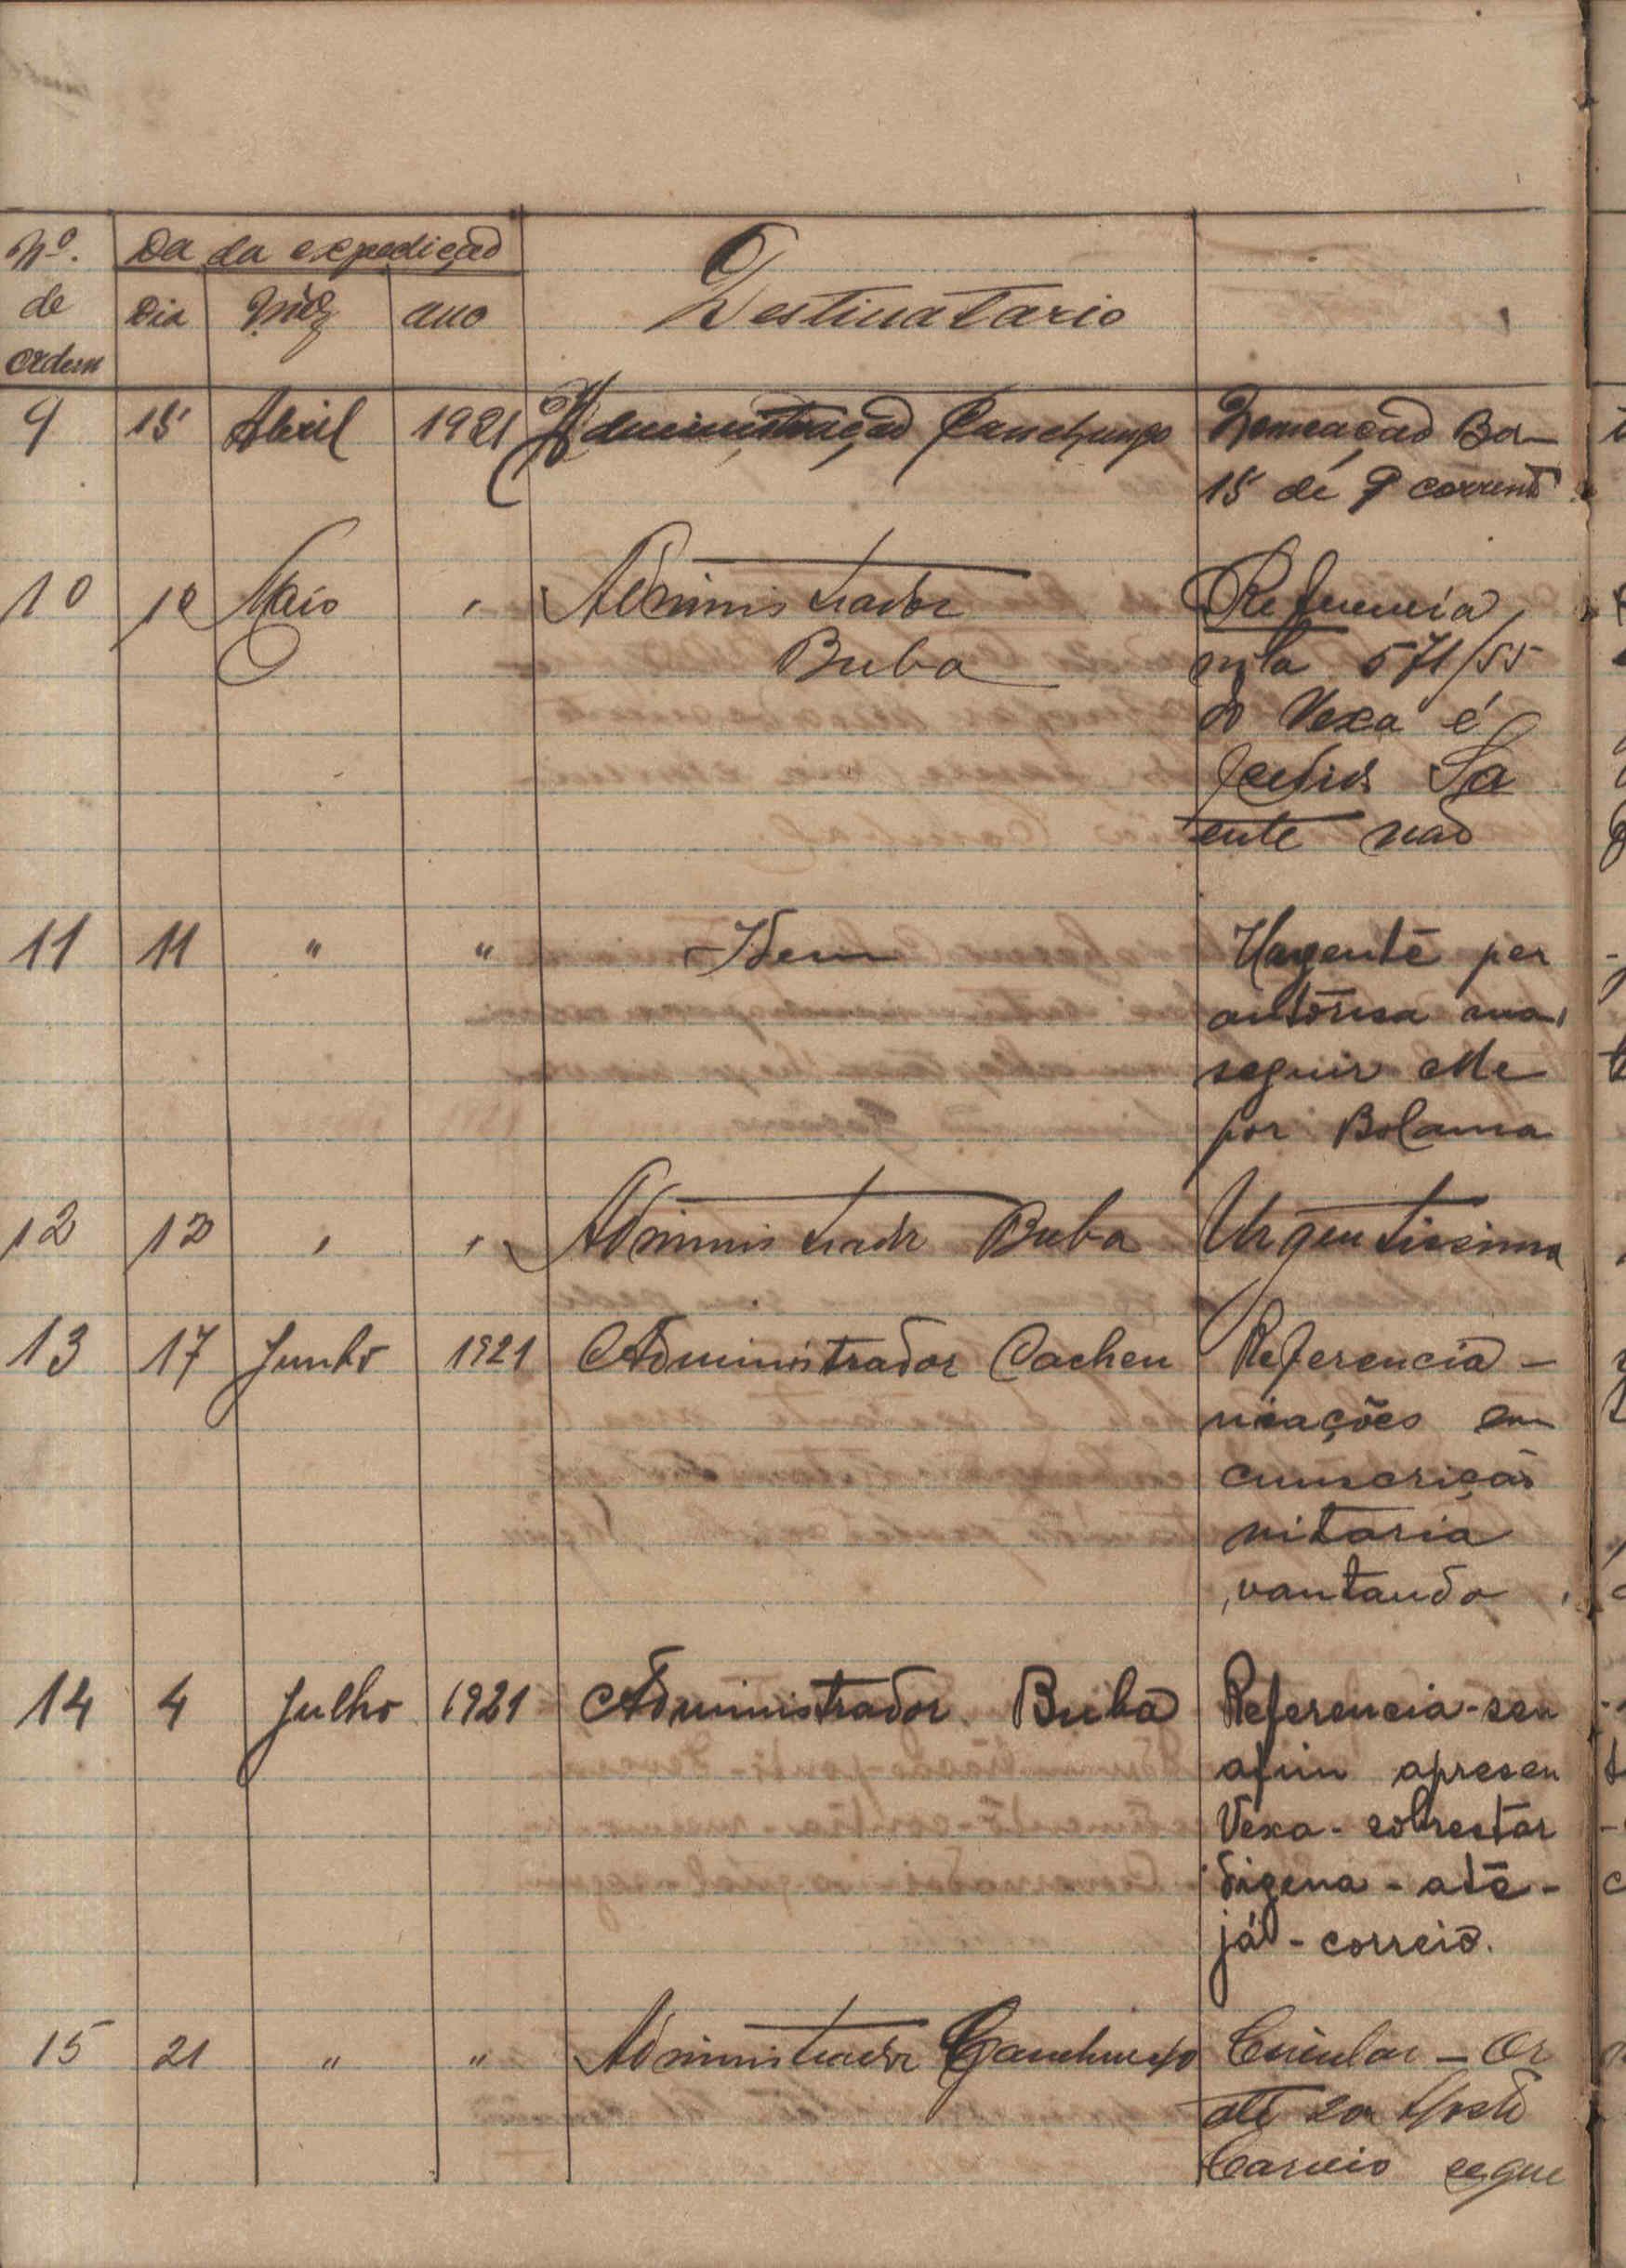 Nº. Da da expedição
de Dia Mêz ano Destinatario
ordem
9 15 Abril 1921 Administração Canchungo Nomeação Ba-
15 de 9 corrente
10 10 Maio , Administrador Referencia
Buba nota 571/55
Vexa é
ente não
11 11 " " Idem Urgente per
autorisa
seguir
por Bolama
12 12 , , Administrador Buba Urgentissima
13 17 Junho 1921 Administrador Cacheu Referencia -
nicações em
cunscrição
nitaria
vantando
14 4 Julho 1921 Administrador Buba Referencia - seu
afim apresen
Vexa - sobrestar
digena - até -
já - correio.
15 21 " " Administrador Canchungo Circular - Or
até 20
Correio segue